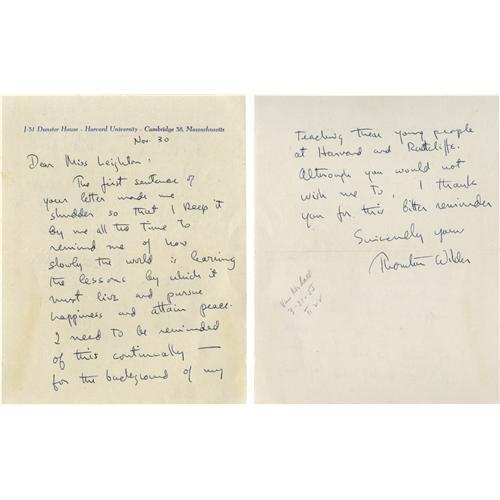 J-31 Dunster House - Harvard University - Cambridge 38, Massachusetts
Nov. 30
Dear Miss Leighton:
The first sentence of
your letter made me
shudder so that I keep it
by me all the time to
remind me of how
slowly the world is learning
the lessons by which it
must live and pursue
happiness and attain peace.
I need to be reminded
of this continually —
for the background of my
teaching these young people
at Harvard and Radcliffe.
Although you would not
wish me to, I thank
you for this bitter reminder
Sincerely yours
Thornton Wilder